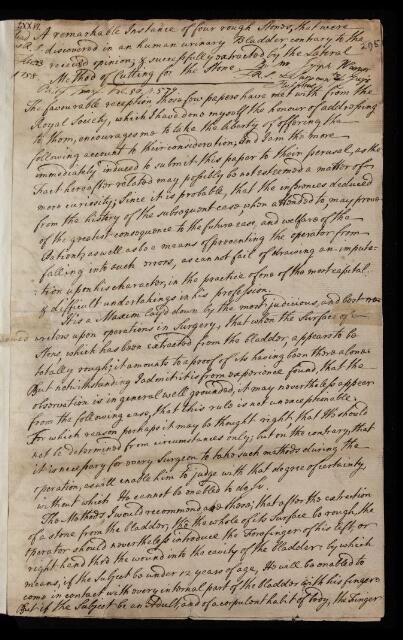 LXXVI.
A remarkable Instance of four rough Stones, that were
discovered in an human urinary Bladder contrary to the
received opinion; & successfully extracted by the Lateral
Method of Cutting for the Stone. By Mr Joseph Warner
F.R.S. & Surgeon to Guy's
Hospital
295
The favourable reception those few papers have met with from the
Royal Society, which I have done myself the honour of addressing
to them, encourages me to take the liberty of offering the
following account to their consideration; and I am the more
immediately induced to submit this paper to their perusal, as the
Fact hereafter related may possibly be not esteemed a matter of
mere curiosity; Since it is probable, that the inferences deduced
from the history of the subsequent case, when attended to, may prove
of the greatest consequence to the future ease, and welfare of the
Patient; as well as to a means of preventing the operator from
falling into such errors, as cannot fail of bringing an imputa-
tion upon his character, in the practice of one of the most capital
& difficult undertakings in his profession.
It is a Maxim layed down by the most judicious, and best
writers upon operations in Surgery, that when the Surface of a
Stone which has been extracted from the bladder, appears to be
totally rough; it amounts to a proof of its having been there alone.
But notwithstanding I admit it is from experience found, that the
observation is in general well grounded, it may nevertheless appear
from the following case, that this rule is not unexceptionable.
For which reason perhaps it may be thought right, that We should
not be determined from circumstances only; but on the contrary, that
it is necessary for every Surgeon to take such methods during the
operation, as will enable him to judge with that degree of certainty,
without which He cannot be enabled to do so.
The Methods I would recommend are these; that after the extraction
of a stone from the bladder, the whole of its Surface be rough, the
operator should nevertheless introduce the Forefinger of his left or
right hand thro' the wound into the cavity of the Bladder: by which
means, if the Subject be under 12 years of age, He will be enabled to
come in contact with every internal part of the bladder with his finger.
But if the Subject be an Adult, and of a corpulent habit of body, the Finger